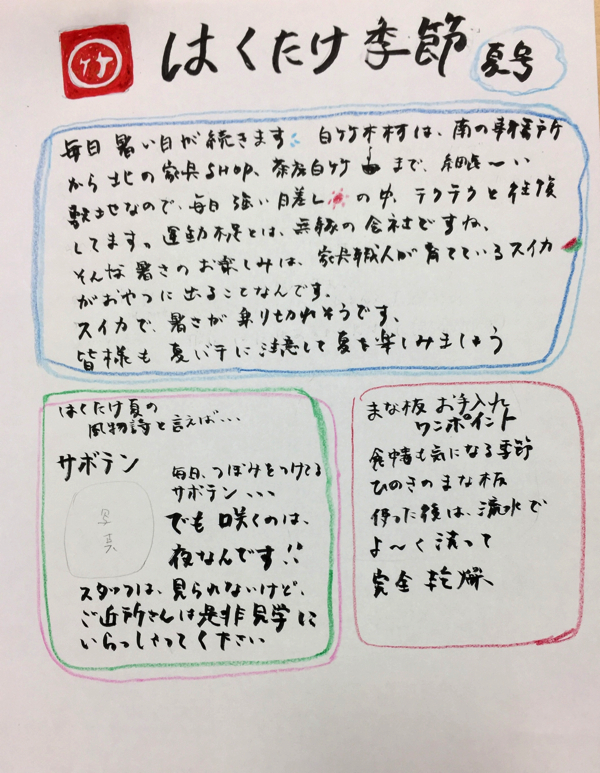 竹
はくたけ季節
夏号
毎日暑い日が続きます。白竹木材は、南の事務所
から北の家具SHOP、茶店白竹まで、細長〜い
敷地なので、毎日強い日差しの中、テクテクと往復
してます。運動不足とは、無縁の会社ですね。
そんな暑さのお楽しみは、家具職人が育てているスイカ
がおやつに出ることなんです。
スイカで、暑さが乗り切れそうです。
皆様も夏バテに注意して夏を楽しみましょう
はくたけ夏の
風物詩と言えば...
サボテン
写真
毎日、つぼみをつけてる
サボテン...
でも咲くのは、
夜なんです!!
スタッフは、見られないけど、
ご近所さんは是非見学に
いらっしゃってください
まな板お手入れ
ワンポイント
食中毒も気になる季節
ひのきのまな板
使った後は、流水で
よ〜く洗って
完全乾燥、